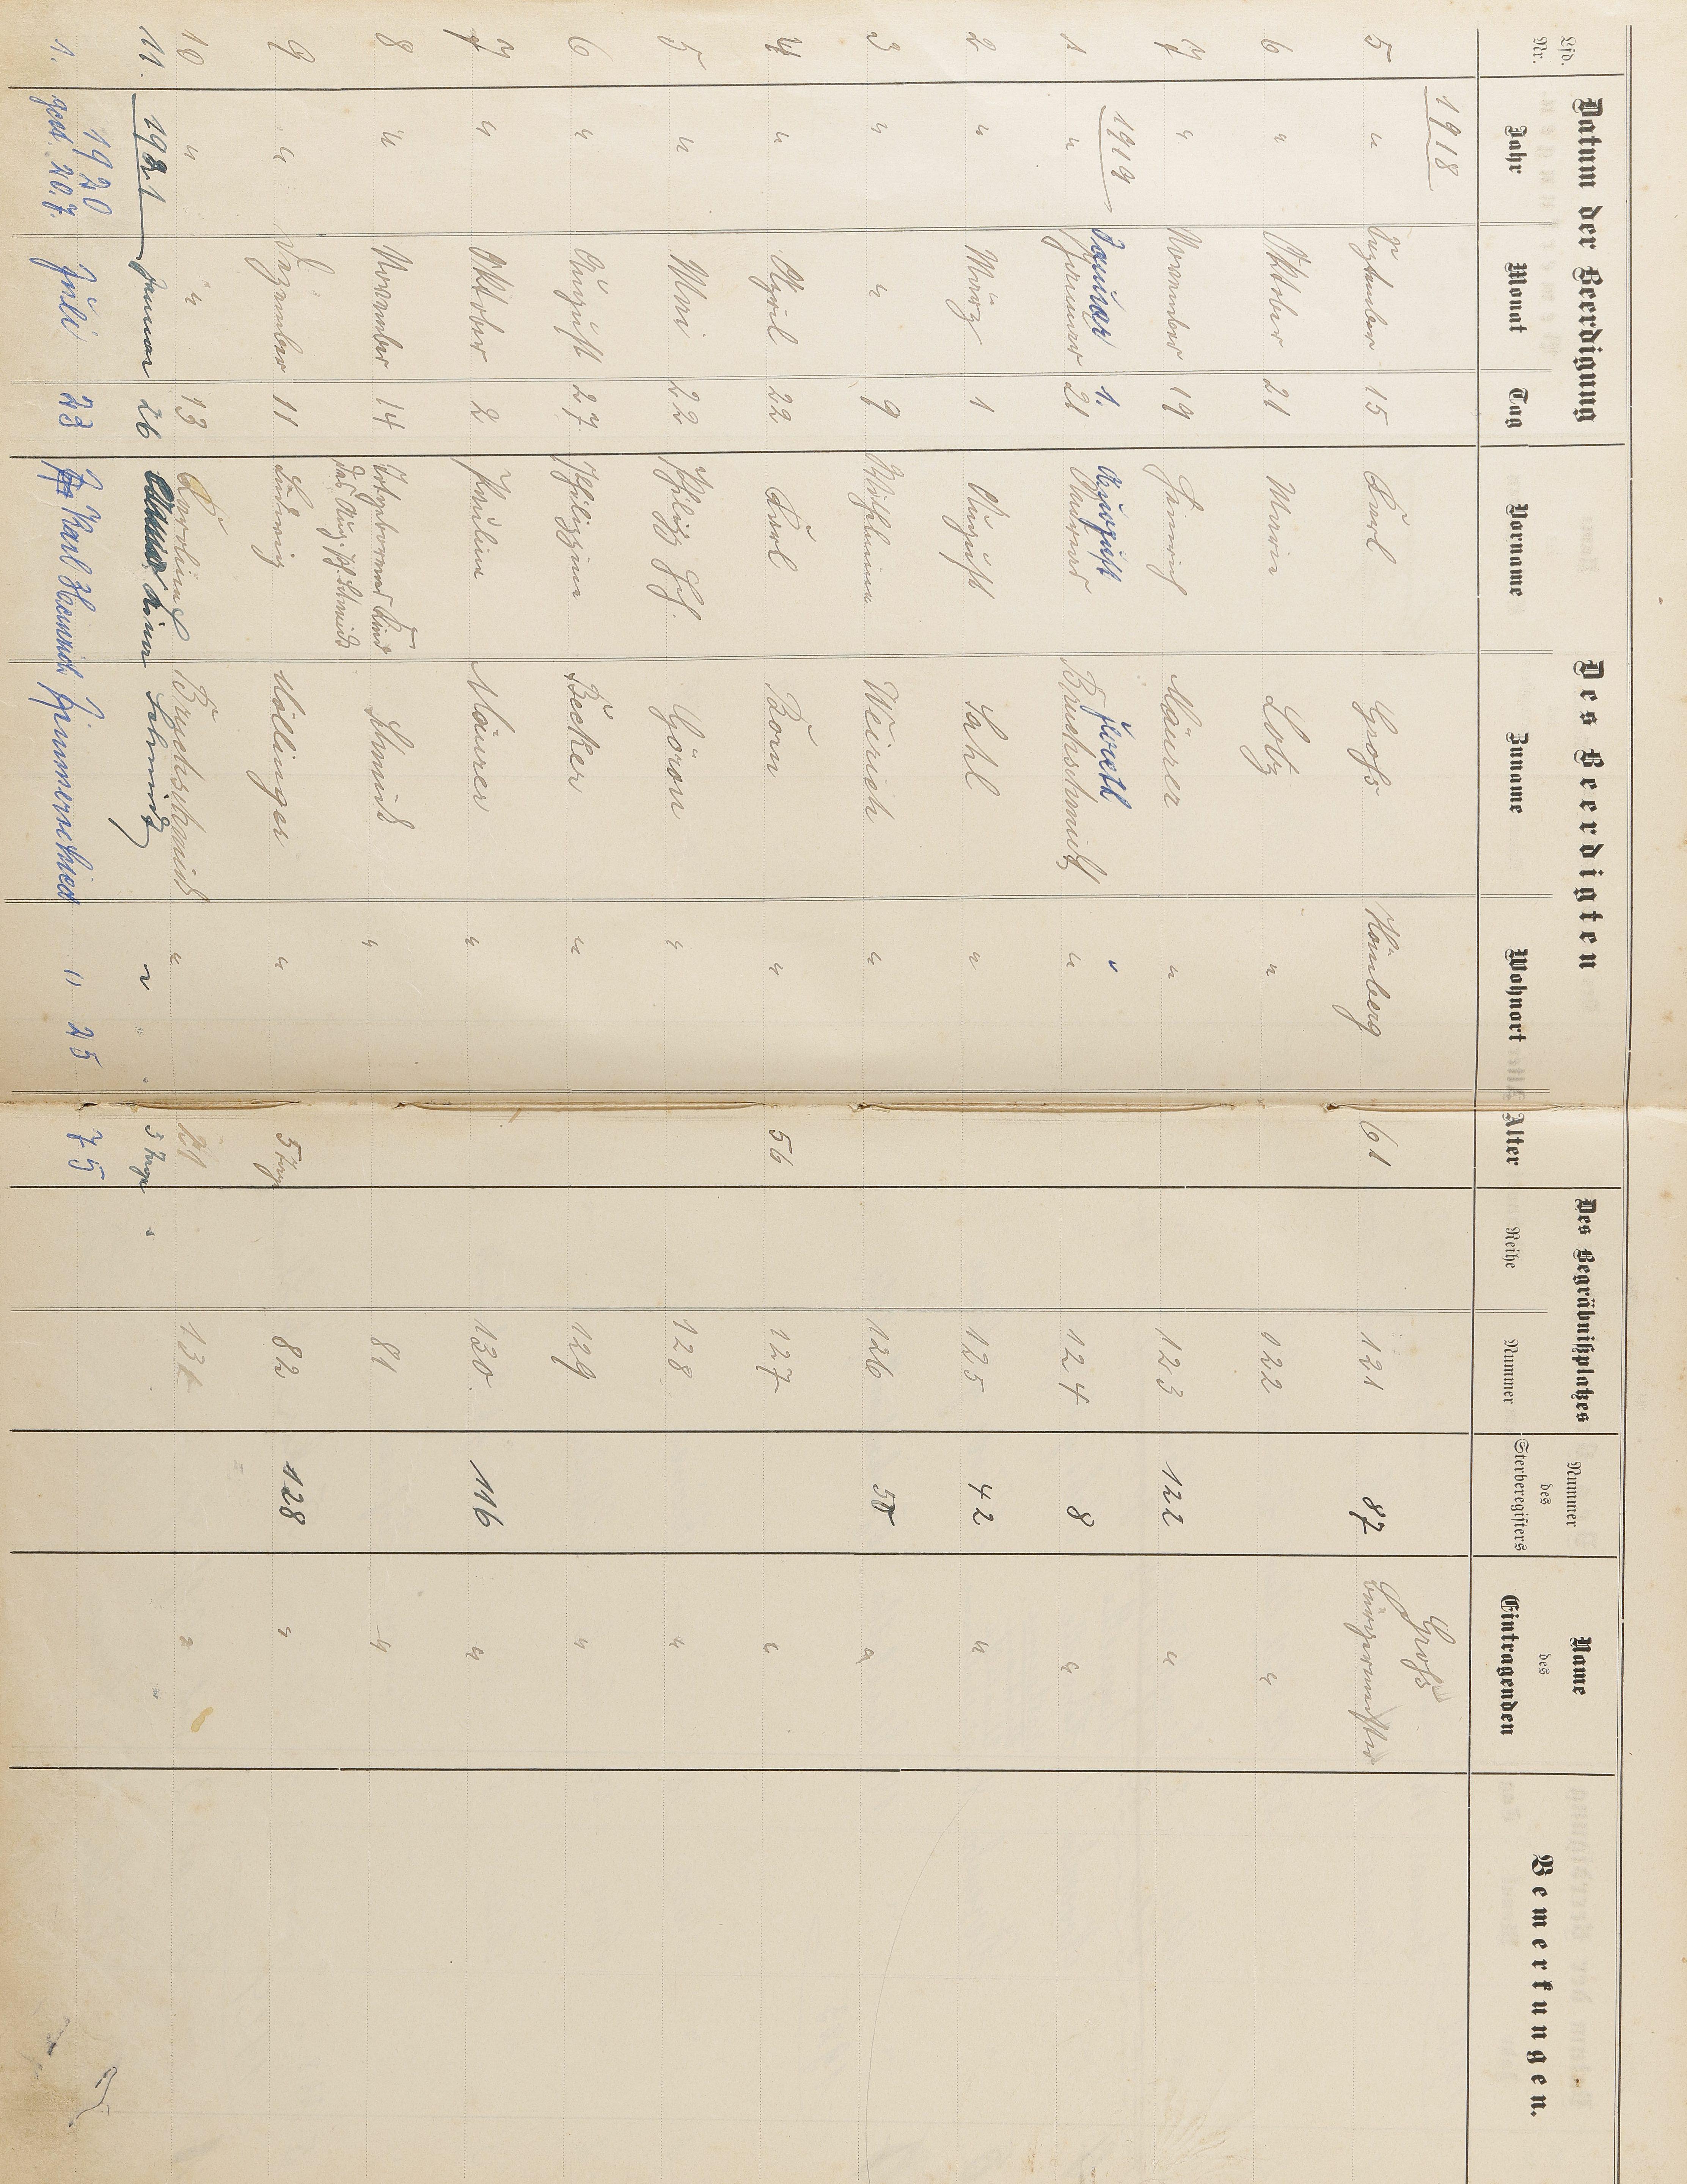 Datum der Beerdigung Des Beerdigten Des Begräbnißplatzes Nummer des Sterberegisters Name des Eintragenden Bemerkungen.
Lfd. Nr. Jahr Monat Tag Vorname Zuname Wohnort Alter Reihe Nummer
1918 Groß
5 " September 15 Karl Groß Hömberg 61 121 87 Bürgermeister
6 " Oktober 21 Maria Lotz " 122 "
7 " November 19 Heinrich Maurer " 123 122 "
1919 Januar 1. August "
1 " Januar 21 Bruchschmidt " 124 8 "
2 " März 1 August Sahl " 125 42 "
3 " " 9 Wilhelmine Weirich " 126 "
4 " April 22 Karl Born " 56 127 "
5 " Mai 22 Philipp Göron " 128 "
6 " August 27 Philippine Becker " 129 "
7 " Oktober 2 Pauline Maurer " 130 116 "
8 " November 14 Totgeborenes Kind Schmidt " 81 "
des Aug. Schmidt
9 " Dezember 11 Ludwig Möllinger " 5 Tage 82 128 "
10 " " 13 Karoline Bruchschmidt " "
11. 1921 Januar 26 Lina Schmidt " 3 Tage
1920
1. gest. 20.7. Juli 23 Karl Heinrich Zimmerschied " 25 75